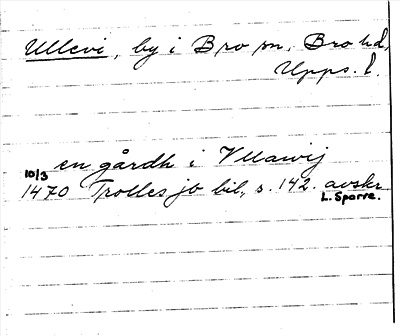 Ullevi, by i Bro sn, Bro hd,
Upps. l.
en gårdh i Vllawij
10/3
1470 Trolles jb bil, s. 142. avskr
L. Sparre.